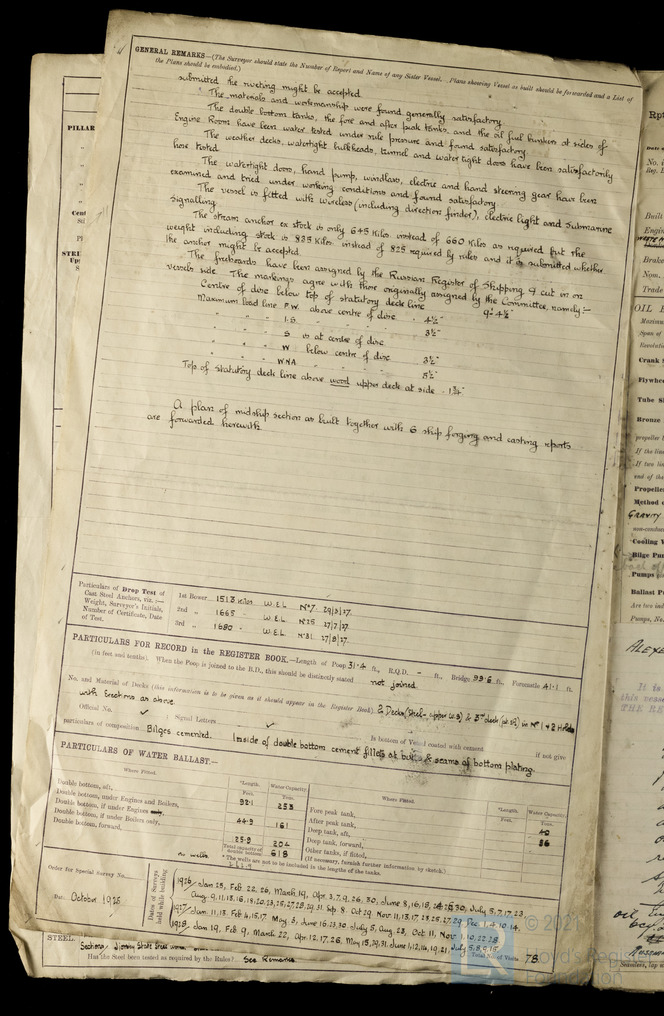 GENERAL REMARKS—(The Surveyor should state the Number of Report and Name of any Sister Vessel. Plans shewing Vessel as built should be forwarded and a List of
the Plans should be embodied.)
submitted the riveting might be accepted.
The materials and workmanship were found generally satisfactory.
The double bottom tanks, the fore and after peak tanks and the oil fuel bunkers at sides of
Engine Room have been water tested under rule pressure and found satisfactory.
The weather decks, watertight bulkheads, tunnel and water tight doors have been satisfactorily
hose tested.
The watertight doors, hand pump, windlass, electric and hand steering gear have been
examined and tried under working conditions and found satisfactory.
The vessel is fitted with wireless (including direction finder), electric light and submarine
signalling.
The stream anchor ex stock is only 645 Kilos instead of 660 Kilos as required but the
weight including stock is 835 Kilos instead of 825 required by rules and it is submitted whether
the anchor might be accepted.
The freeboards have been assigned by the Russian Register of Shipping & cut in on
vessels side. The markings agree with those originally assigned by the Committee, namely:-
Centre of disc below top of statutory deck line 9'- 4½"
Maximum load line F.W. above centre of disc 4½"
" " " I.S. " " " 3½"
" " " S is at centre of disc
" " " W below centre of disc 3½"
" " " WNA " " " 5½"
Top of statutory deck line above wood upper deck at side - 1¾"
A plan of midship section as built together with 6 ship forging and casting reports
are forwarded herewith.
Particulars of Drop Test of
Cast Steel Anchors, viz. :—
Weight, Surveyor's Initials,
Number of Certificate, Date
of Test.
1st Bower 1513 Kilos W.E.L. Nº7 29/3/27.
2nd " 1665 " W.E.L. Nº25 27/7/27.
3rd " 1680 " W.E.L. Nº31 27/8/27.
PARTICULARS FOR RECORD in the REGISTER BOOK.—Length of Poop 31.4 ft., R.Q.D. - ft., Bridge 99.6 ft., Forecastle 41.1 ft.
(in feet and tenths). When the Poop is joined to the B.D., this should be distinctly stated not joined
No. and Material of Decks (this information is to be given as it should appear in the Register Book) 2 Decks (Steel - upper W.S) & 3rd deck (pt st) in Nº 1 & 2 Holds
with Erections as above.
Official No. ✓ ; Signal Letters ✓ Is bottom of Vessel coated with cement if not give
particulars of composition Bilges cemented. Inside of double bottom cement fillets at butts & seams of bottom plating.
PARTICULARS OF WATER BALLAST.—
Where Fitted. *Length. Water Capacity. Where Fitted. *Length. Water Capacity.
Feet. Tons. Feet. Tons.
Double bottom, aft, 92.1 253 Fore peak tank,
Double bottom, under Engines and Boilers, After peak tank, 40
Double bottom, if under Engines only, 44.9 161 Deep tank, aft, 86
Double bottom, if under Boilers only, Deep tank, forward,
Double bottom, forward, 204 Other tanks, if fitted,
Total capacity of double bottom 618 (If necessary, furnish further information by sketch.)
no wells. * The wells are not to be included in the lengths of the tanks.
Order for Special Survey No.
Date October 1925
Dates of Surveys held while building
1926/ Jan 25, Feb 22, 26, March 19, Apr 3, 7, 9, 26, 30, June 8, 16, 18,
1927/ Jan 11, 13,
1928/ Jan 19, Feb 9, March 22, Apr 12, 17, 26,
Total No. of Visits 78
STEEL.
Has the Steel been tested as required by the Rules? See Remarks
PILLAR
OIL E
Crank
Flywhee
Tube Sh
Bronze
Propelle
Method o
GRAVITY
Cooling W
Bilge Pum
Pumps
Ballast P
ALEX
© 2021
Lloyd's Register
Foundation